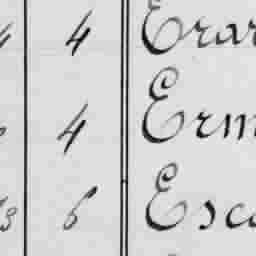 4 Erar
4 Erm
3 6 Esc